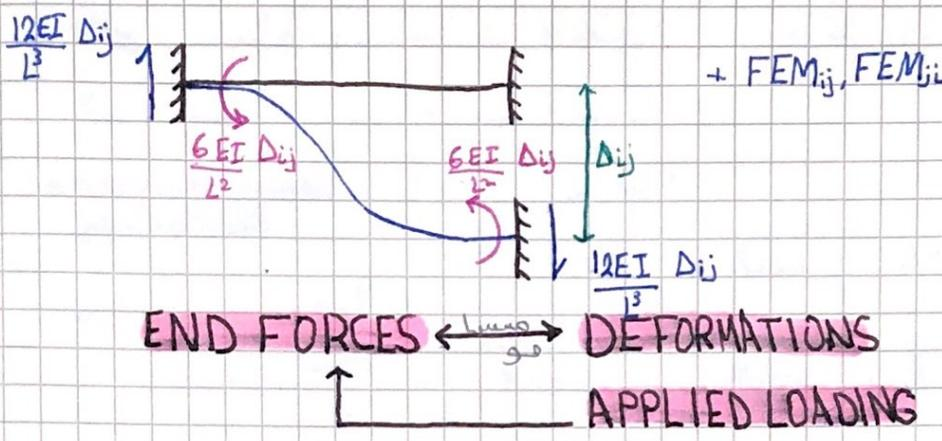 12EI/L³ Δij
+ FEMij, FEMji
6EI/L² Δij
6EI/L² Δij
Δij
12EI/L³ Δij
END FORCES ⟷ DEFORMATIONS
APPLIED LOADING